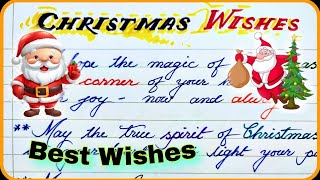 CHRISTMAS WISHES
hope the magic of
corner of your
joy - now and
** May the true spirit of Christmas
light your
Best Wishes